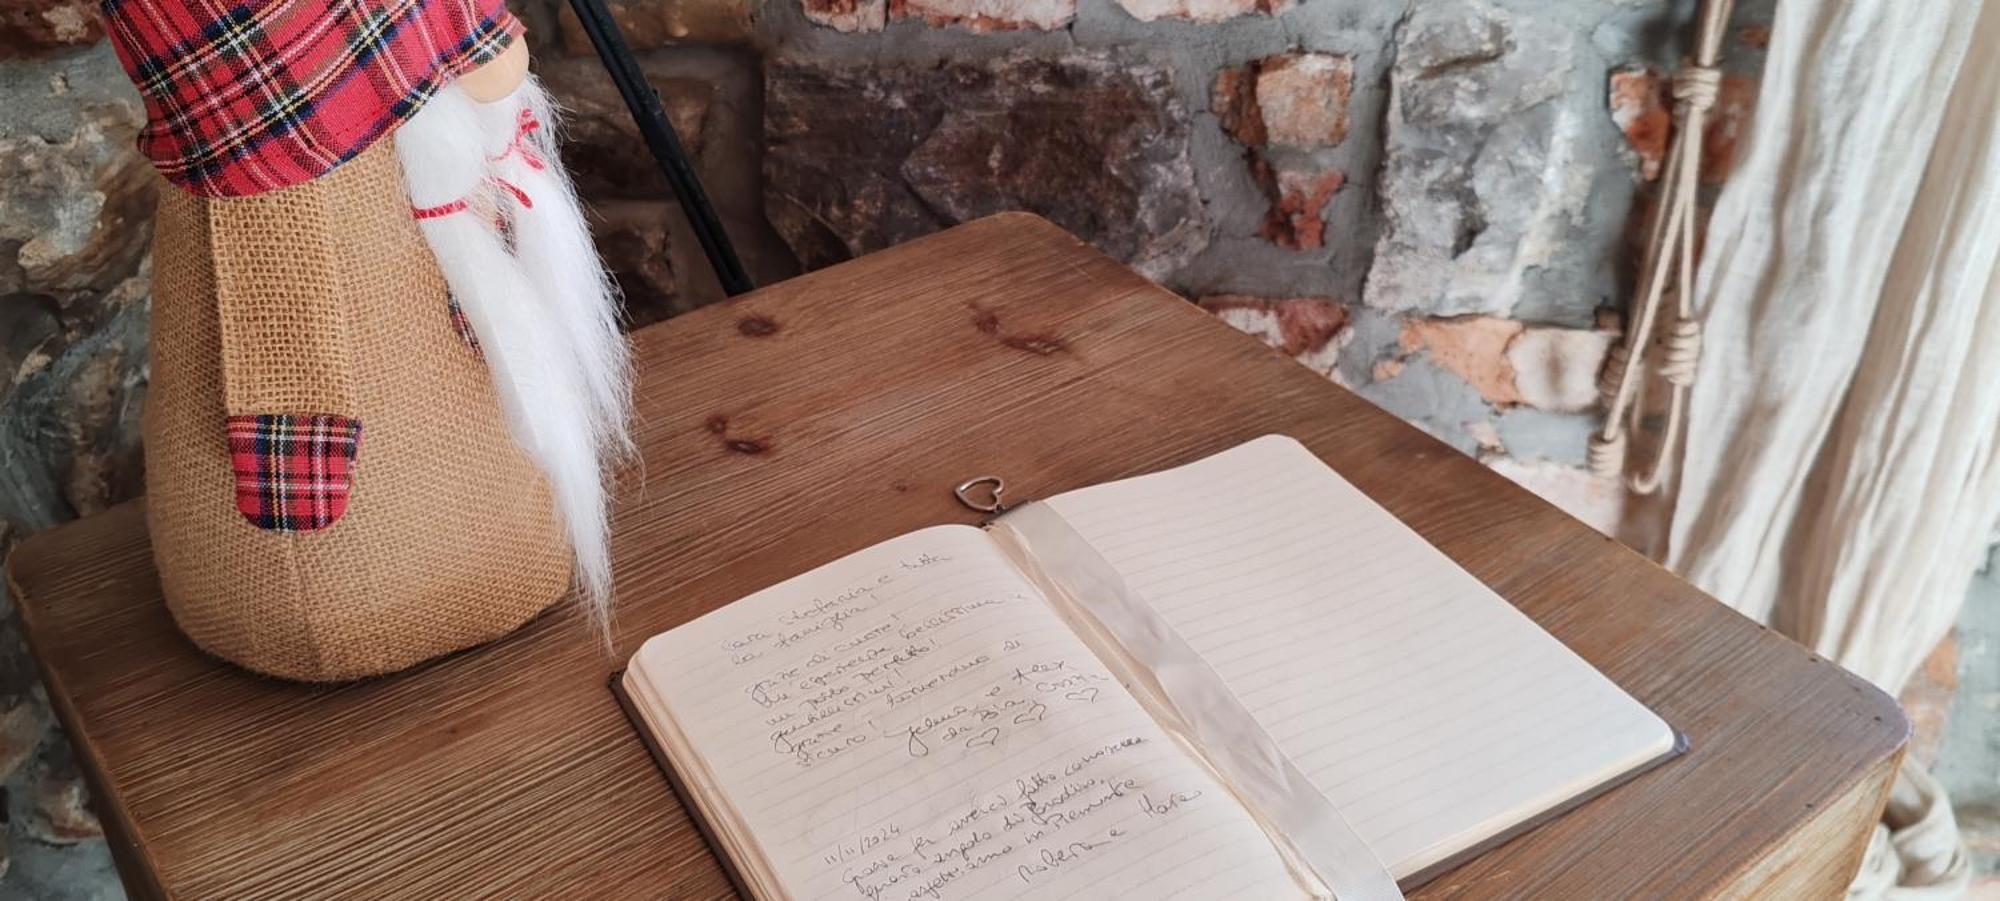 Cara Stefania e tutta
la famiglia!
grazie di cuore!
esperienza bellissima e
un posto perfetto!
gentilissimi!
grazie! Torneremo di
sicuro! e Alex
da Bia
11/11/2024
Grazie per averci fatto conoscere
questo angolo di Paradiso,
aspettiamo in Piemonte
Roberta e